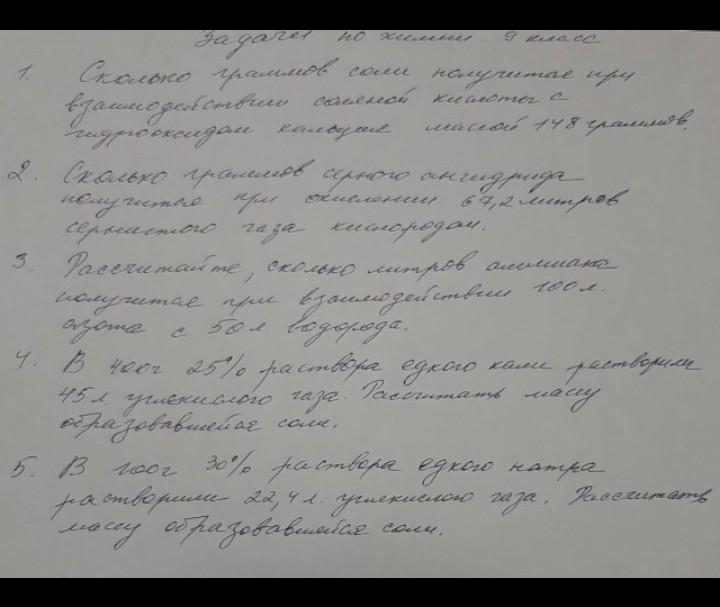 Задачи по химии. 9 класс
1. Сколько граммов соли получится при
взаимодействии соляной кислоты с
гидрооксидом кальция массой 148 граммов.
2. Сколько граммов серного ангидрида
получится при окислении 67,2 литров
сернистого газа кислородом.
3. Рассчитайте, сколько литров аммиака
получится при взаимодействии 100 л.
азота с 50 л. водорода.
4. В 400г 25% раствора едкого кали растворили
45 л. углекислого газа. Рассчитать массу
образовавшейся соли.
5. В 200г 30% раствора едкого натра
растворили 22,4 л. углекислого газа. Рассчитать
массу образовавшейся соли.